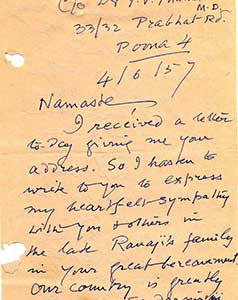 C/o Dr
M.D.
33/32 Prabhat Rd.
Poona 4
4/6/57
Namaste,
I received a letter
to-day giving me your
address. So I hasten to
write to you to express
my heartfelt sympathy
with you & others in
the late Ranaji's family
in your great bereavement.
Our country is greatly